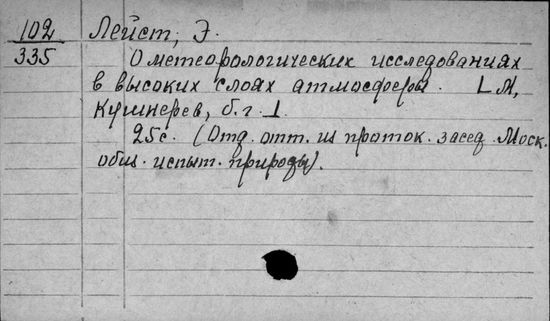 102 Лейст, Э.
335 О метеорологических исследованиях
в высоких слоях атмосферы. [М,
Кушнерев, б.г.]
25с. (Отд. отт. из проток. засед. Моск.
общ. испыт. природы).